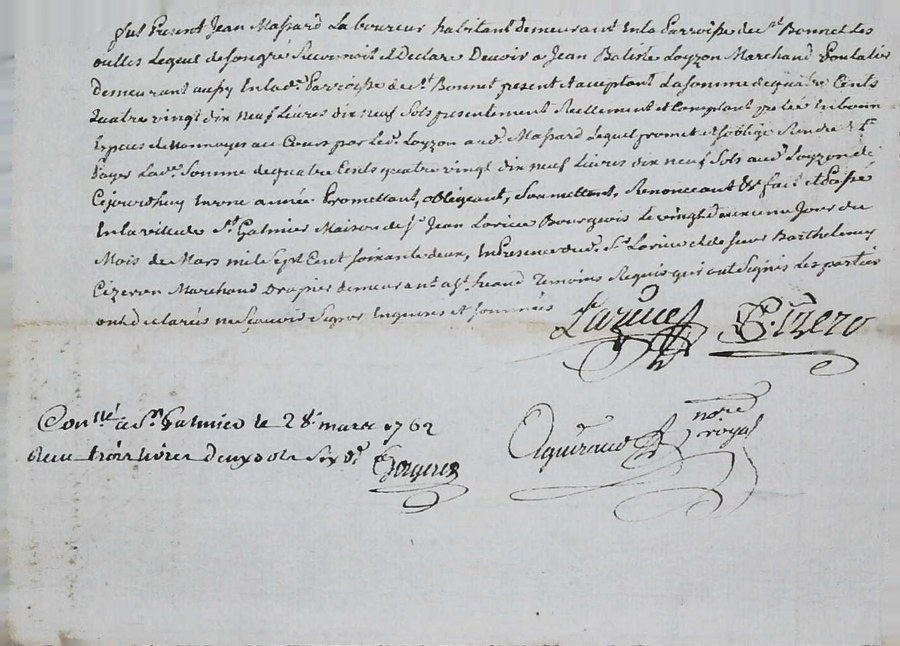 fut Present Jean Massard Laboureur habitant demeurant En la Parroisse de St Bonnet Les
oulles Lequel de son gré Reconnoit et Declare Devoir a Jean Batiste Loyzon Marchand Poulalier
demeurant aussy En lade. Parroisse de St Bonnet present et acceptant La somme de quatre Cents
quatre vingt dix neuf Livres dix neuf Sols presentement Reellement et Comptant En bonne
Espece de monnoyes au Cours par Led. Loyzon aud. Massard Lequel promet et s'oblige Rendre et
Payer Lade. Somme de quatre Cents quatre vingt dix neuf Livres dix neuf Sols aud. Loyzon de
Cejourdhuy En une année Promettant, obligeant, Soumettant, Renonceant & fait et Passé
En la ville de St Galmier Maison de Sr Jean Larive Bourgeois Le vingt deuxieme Jour du
Mois de Mars mil Sept Cent soixante deux, En Presence dud. Sr Larive et de sieur Barthelemy
Cezeron Marchand Drapier demeurant a St Temoins Requis qui ont Signés Les parties
ont declarés ne Scavoir Signer Enquis et Sommés
Larive Cizero
Conllé a St Galmier le 28e mars 1762
Receu trois livres Deux sols Six drs
nore
royal